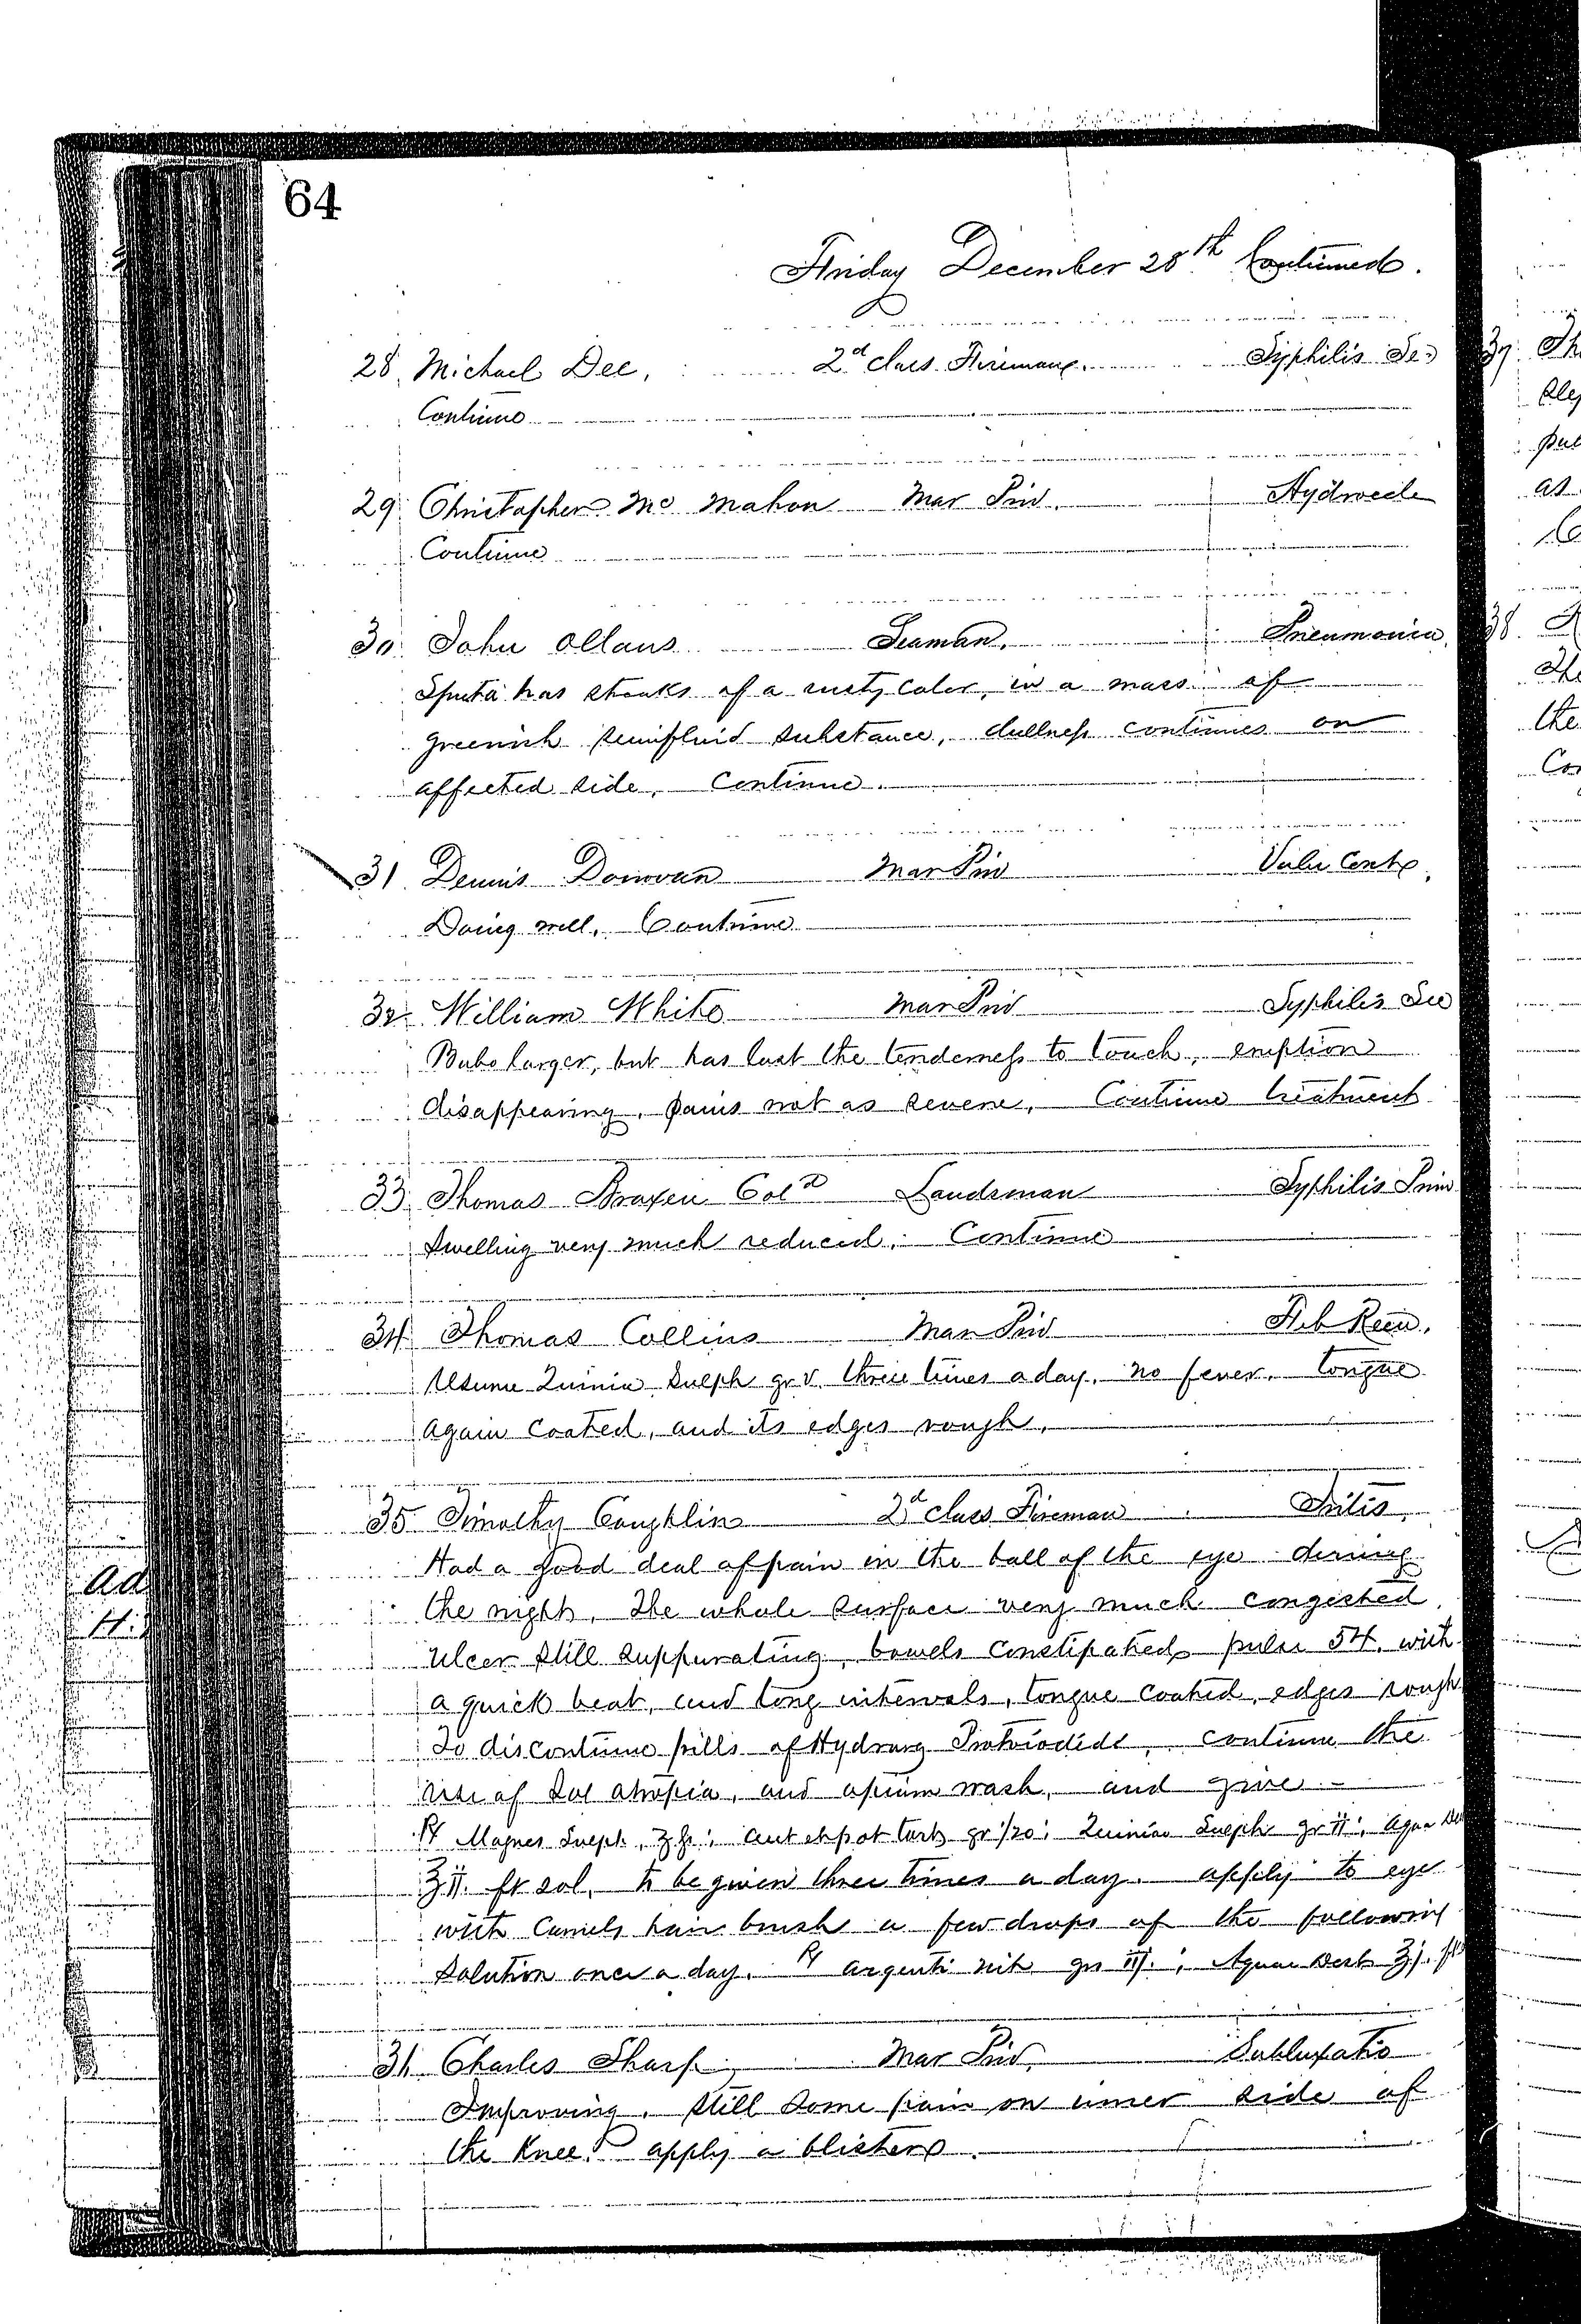 64
Friday December 28th Continued.
28. Michael Dee, 2d class Fireman. Syphilis Se
Continue
29. Christopher Mc Mahon Mar Priv. Hydrocele
Continue
30. John Ollaus Seaman. Pneumonia.
Sputa has streaks of a rusty color, in a mass of
greenish semifluid substance, dullness continues on
affected side, Continue.
31. Dennis Donovan Mar Priv Vuln Cont.
Doing well. Continue
32. William White Mar Priv Syphilis Sec
Bubo larger, but has lost the tenderness to touch, eruption
disappearing, pains not as severe. Continue treatment
33. Thomas Braxen Cold Landsman Syphilis Prim
Swelling very much reduced. Continue
34. Thomas Collins Mar Priv Feb Rem.
Resume Quinia Sulph gr v. three times a day, no fever. tongue
again coated, and its edges rough.
35 Timothy Coughlin 2d class Fireman Iritis.
Had a good deal of pain in the ball of the eye during
the night. The whole surface very much congested,
ulcer still suppurating, bowels constipated, pulse 54, with
a quick beat, and long intervals, tongue coated, edges rough
To discontinue pills of Hydrarg Protoiodide, continue the
use of Sol atropia, and opium wash, and give
℞ Magnes Sulph, ; Ant et pot tart gr 1/20; Quiniae Sulph gr ii; Aqua
ʒii. ft sol, to be given three times a day. apply to eye
with Camels hair brush a few drops of the following
solution once a day. ℞ argenti nit grs iij.; Aquae Dest ℥j. ft
36 Charles Sharp, Mar Priv. Subluxatio
Improving. Still some pain on inner side of
the Knee. apply a blister.
Ad
37. Th
as
38.
The
the